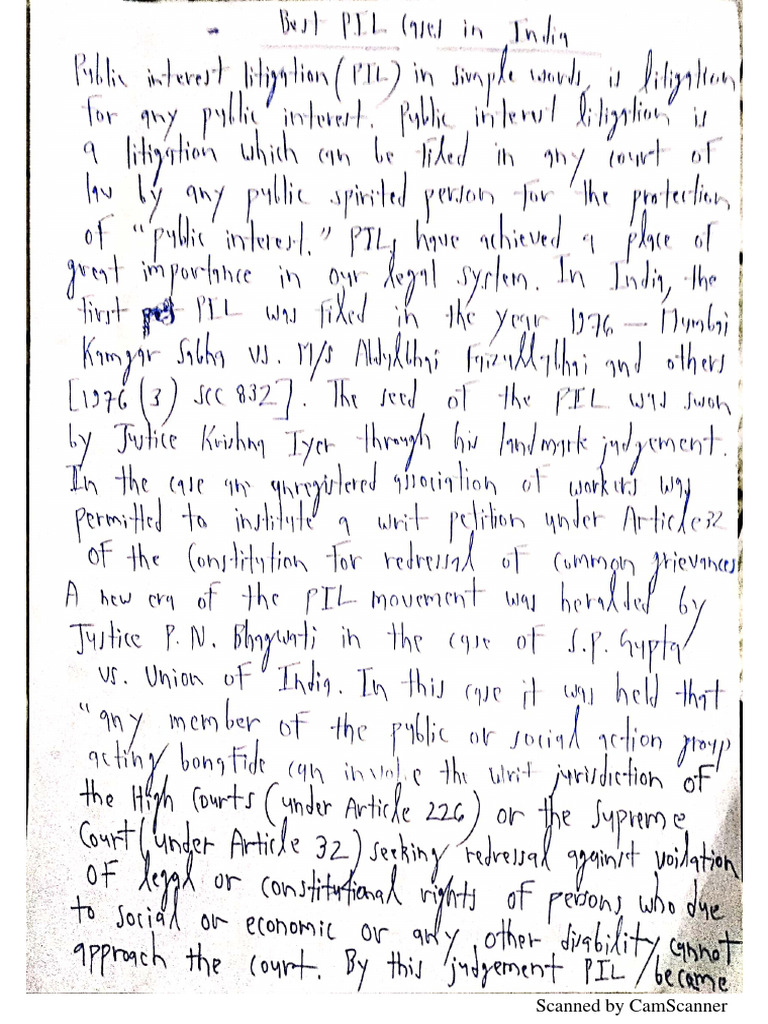 - Best PIL Cases in India
Public interest litigation (PIL) in simple words, is litigation
for any public interest. Public interest litigation is
a litigation which can be filed in any court of
law by any public spirited person for the protection
of "public interest." PILs have achieved a place of
great importance in our legal system. In India, the
first PIL was filed in the year 1976 — Mumbai
Kamgar Sabha vs. M/s Abdulbhai Faizullabhai and others
[1976 (3) SCC 832]. The seed of the PIL was swon
by Justice Krishna Iyer through his landmark judgement.
In the case an unregistered association of workers was
permitted to institute a writ petition under Article 32
of the Constitution for redressal of common grievances
A new era of the PIL movement was heralded by
Justice P. N. Bhagwati in the case of S.P. Gupta
vs. Union of India. In this case it was held that
"any member of the public or social action group
acting bonafide can invoke the writ jurisdiction of
the High Courts (under Article 226) or the Supreme
Court (under Article 32) seeking redressal against voilation
of legal or constitutional rights of persons who due
to social or economic or any other disability cannot
approach the court. By this judgement PIL became
Scanned by CamScanner